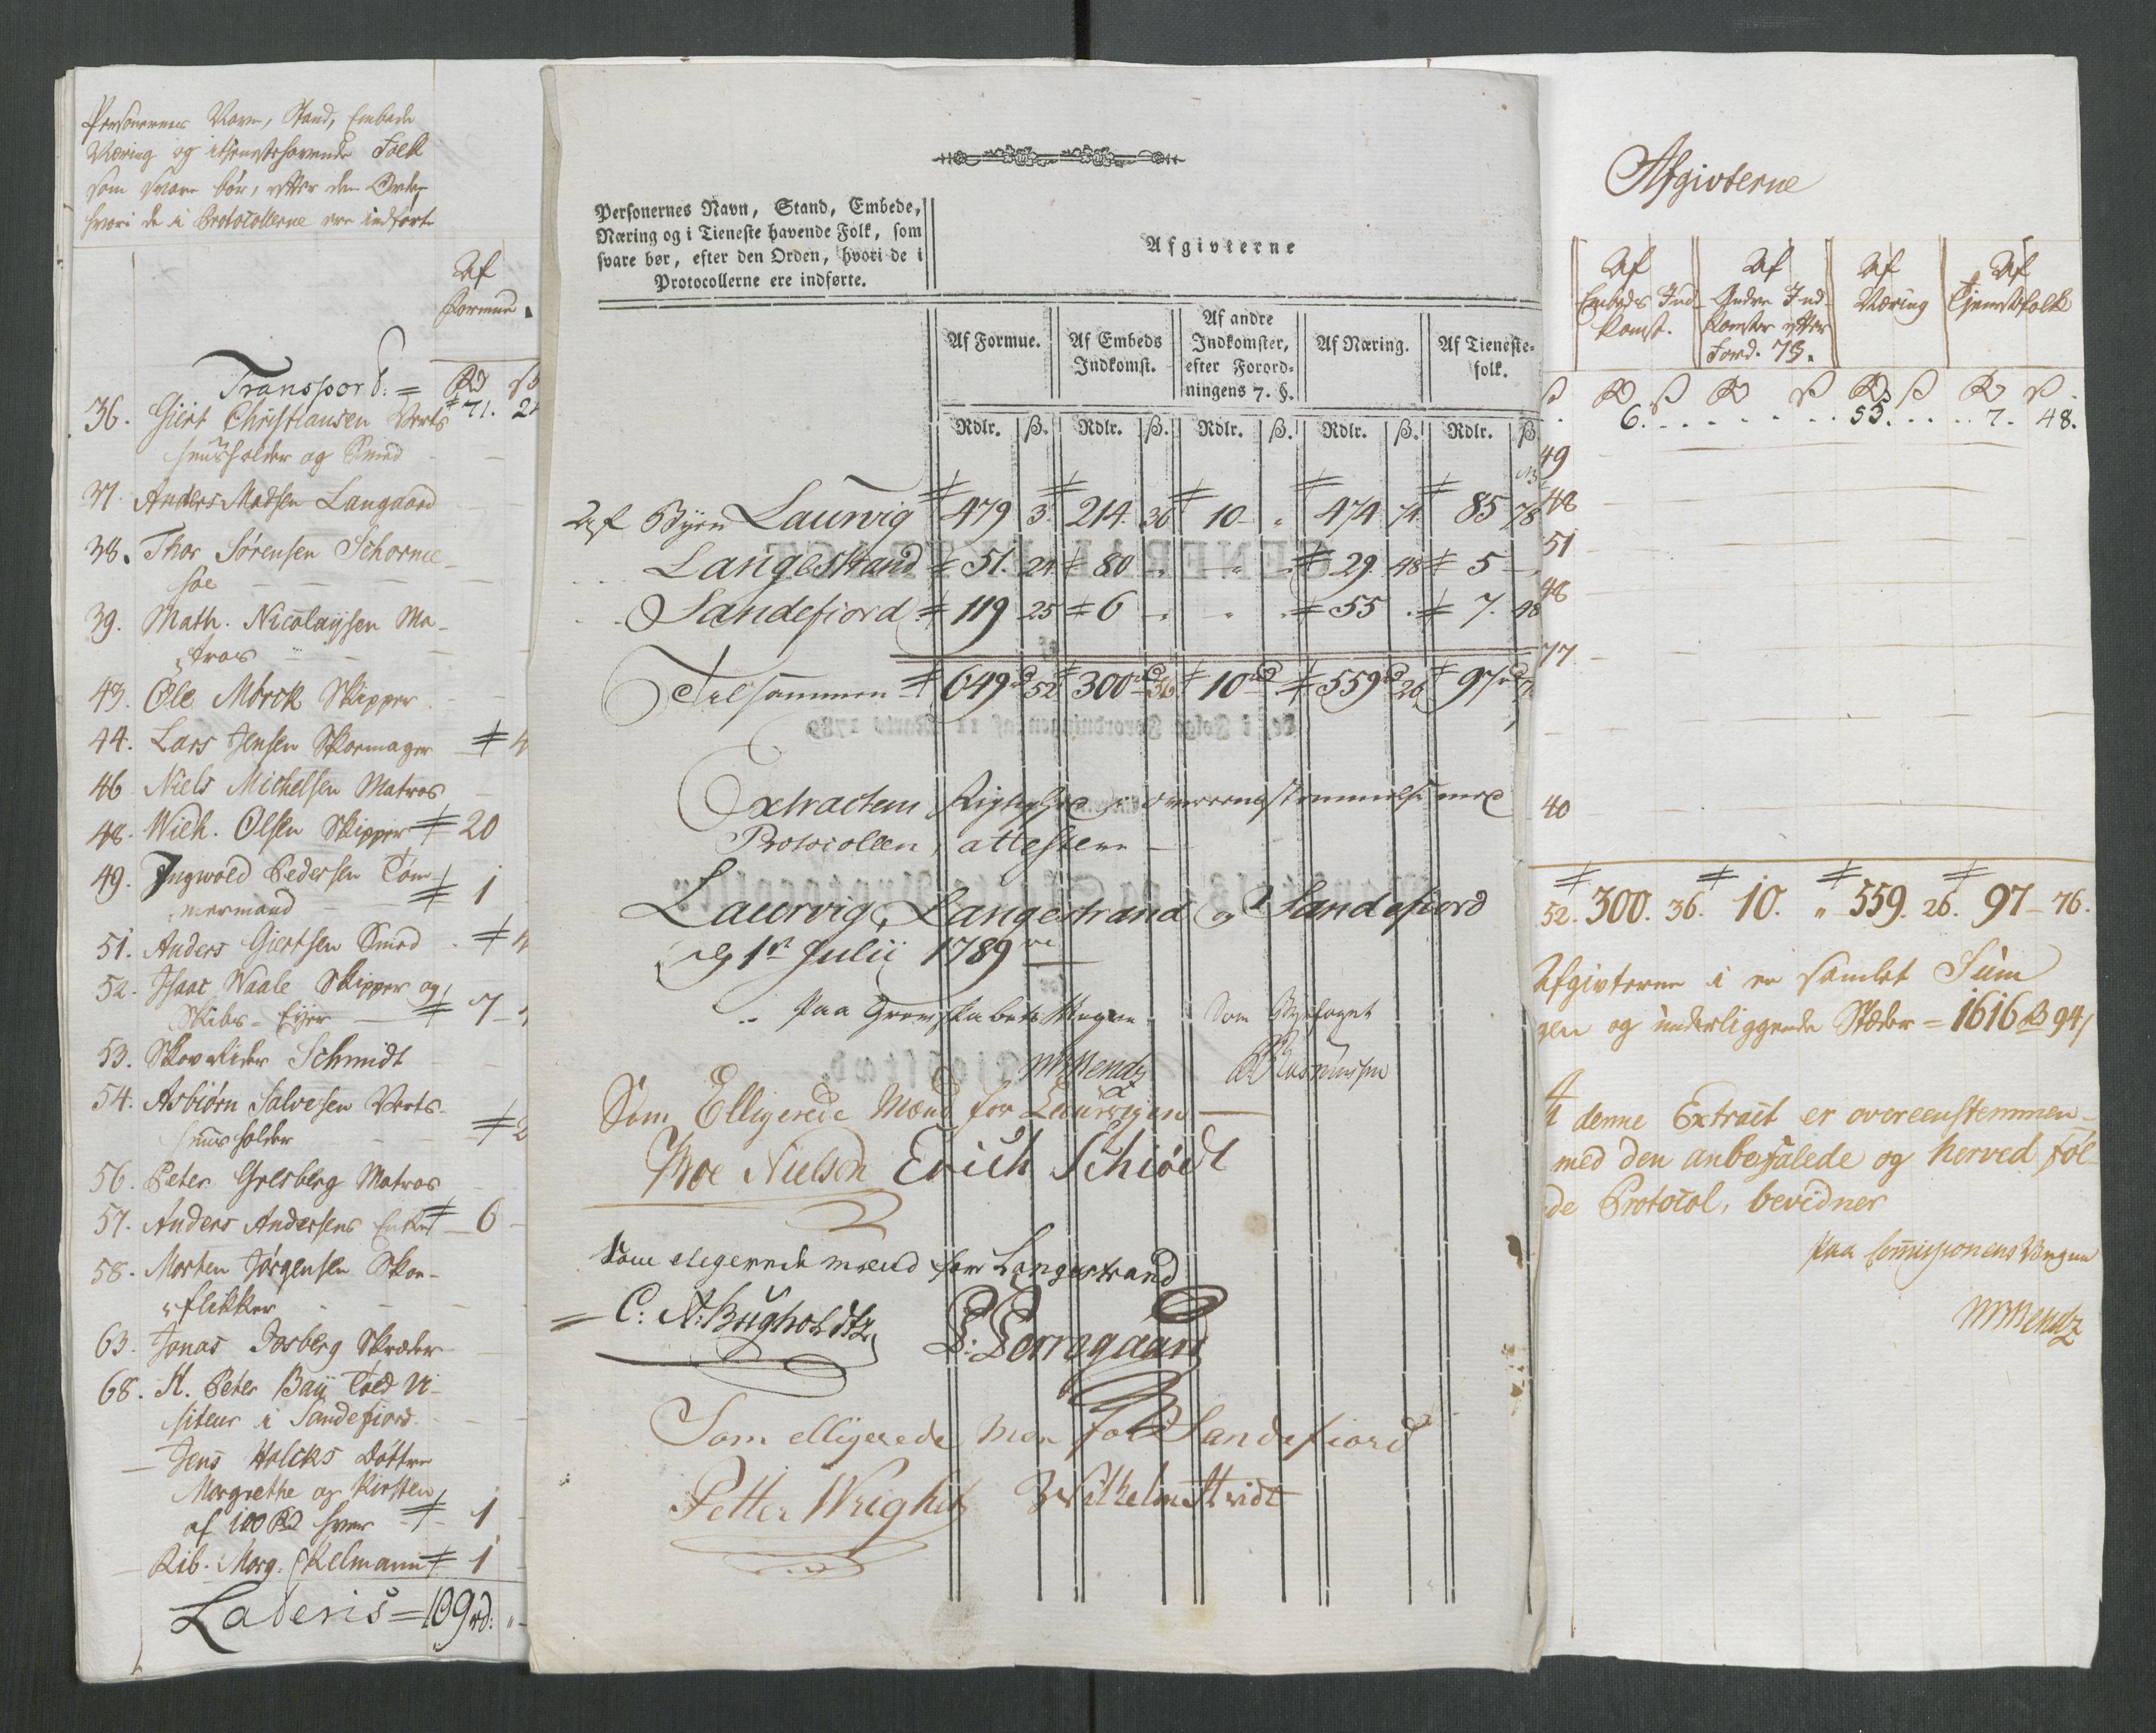 Personernes Navn, Stand, Embede
Næring og i tienestehavende Folk
som svare bør, efter den Orden
hvori de i Protocollerne ere indførte
Af
Formue.
Transport =
71. 2
36. Giert Christiansen Verts
huusholder og Smed
37. Anders Madsen Langaard
38. Thor Sørensen Schorme
39. Math. Nicolaysen Ma-
tros
43. Ole Mørck Skipper
44. Lars Jensen Skoemager 4
46 Niels Michelsen Matros
48. Wilh. Olsen Skipper 20
49. Ingwold Pedersen Tøm-
mermand 1
51. Anders Giertsen Smed 4
52. Isaac Waale Skipper og
Skibs-Eyer 7
53. Skovrider Schmidt
54. Asbiørn Salvesen Verts-
huusholder 2
56. Peter Gresberg Matros
57. Anders Andersens Enke 6
58. Morten Jørgensen Skoe-
flikker
63. Jonas Fosberg Skræder
68. H. Peter Baij Told Vi-
siteur i Sandefiord
Jens Holcks Døttre
Margrethe og Kirsten
af 100 Rd hver 1
Rib. Marg. Skelmann 1
Lateris = 109 rd:
Personernes Navn, Stand, Embede,
Næring og i Tieneste havende Folk, som
svare bør, efter den Orden, hvori de i
Protocollerne ere indførte.
Afgivterne
Af Formue.
Af Embeds
Indkomst.
Af andre
Indkomster,
efter Forord-
ningens 7. §.
Af Næring.
Af Tieneste-
folk.
Rdlr. ß. Rdlr. ß. Rdlr. ß. Rdlr. ß. Rdlr. ß
Af Byen Laurvig 479 3 214. 36 10 " 474 74 85 78
Langestrand 51. 24 80 " " " 29 48 5 "
Sandefiord 119 25 6 " " " 55 " 7. 48
Tilsammen 649 52 300 36 10 559 26 97 7
Extractens Rigtighed i overeensstemmelse med
Protocollen, attestere
Laurvig, Langestrand og Sandefiord
d 1st Julii 1789
Paa Grevskabets Wegne Som Byefoget
MMendz Rasmussen
Som Elligerede Mænd for Laurvigen
Moe Nielsen Erich Schiødt
Som eligerede mænd for Langestrand
C: A: Bugholdtz L: Lorngaard
Som elligerede Mæn for Sandefiord
Petter Wright Wilhelm Hvidt
Afgivterne
Af
Embeds Ind-
komst.
Af
Andre Ind-
komster efter
Ford. 7§.
Af
Næring
Af
Tjenestefolk
6. 55. 7. 48.
49
48
51
48
77
40
52. 300. 36. 10. " 559. 26. 97 - 76.
Afgivterne i en samlet Sum
gen og underliggende Stæder = 1616 Rd 94
At denne Extract er overeenstemmen-
med den anbefalede og herved føl-
de Protocol, bevidner
paa Commissionens Vegne
MMendz